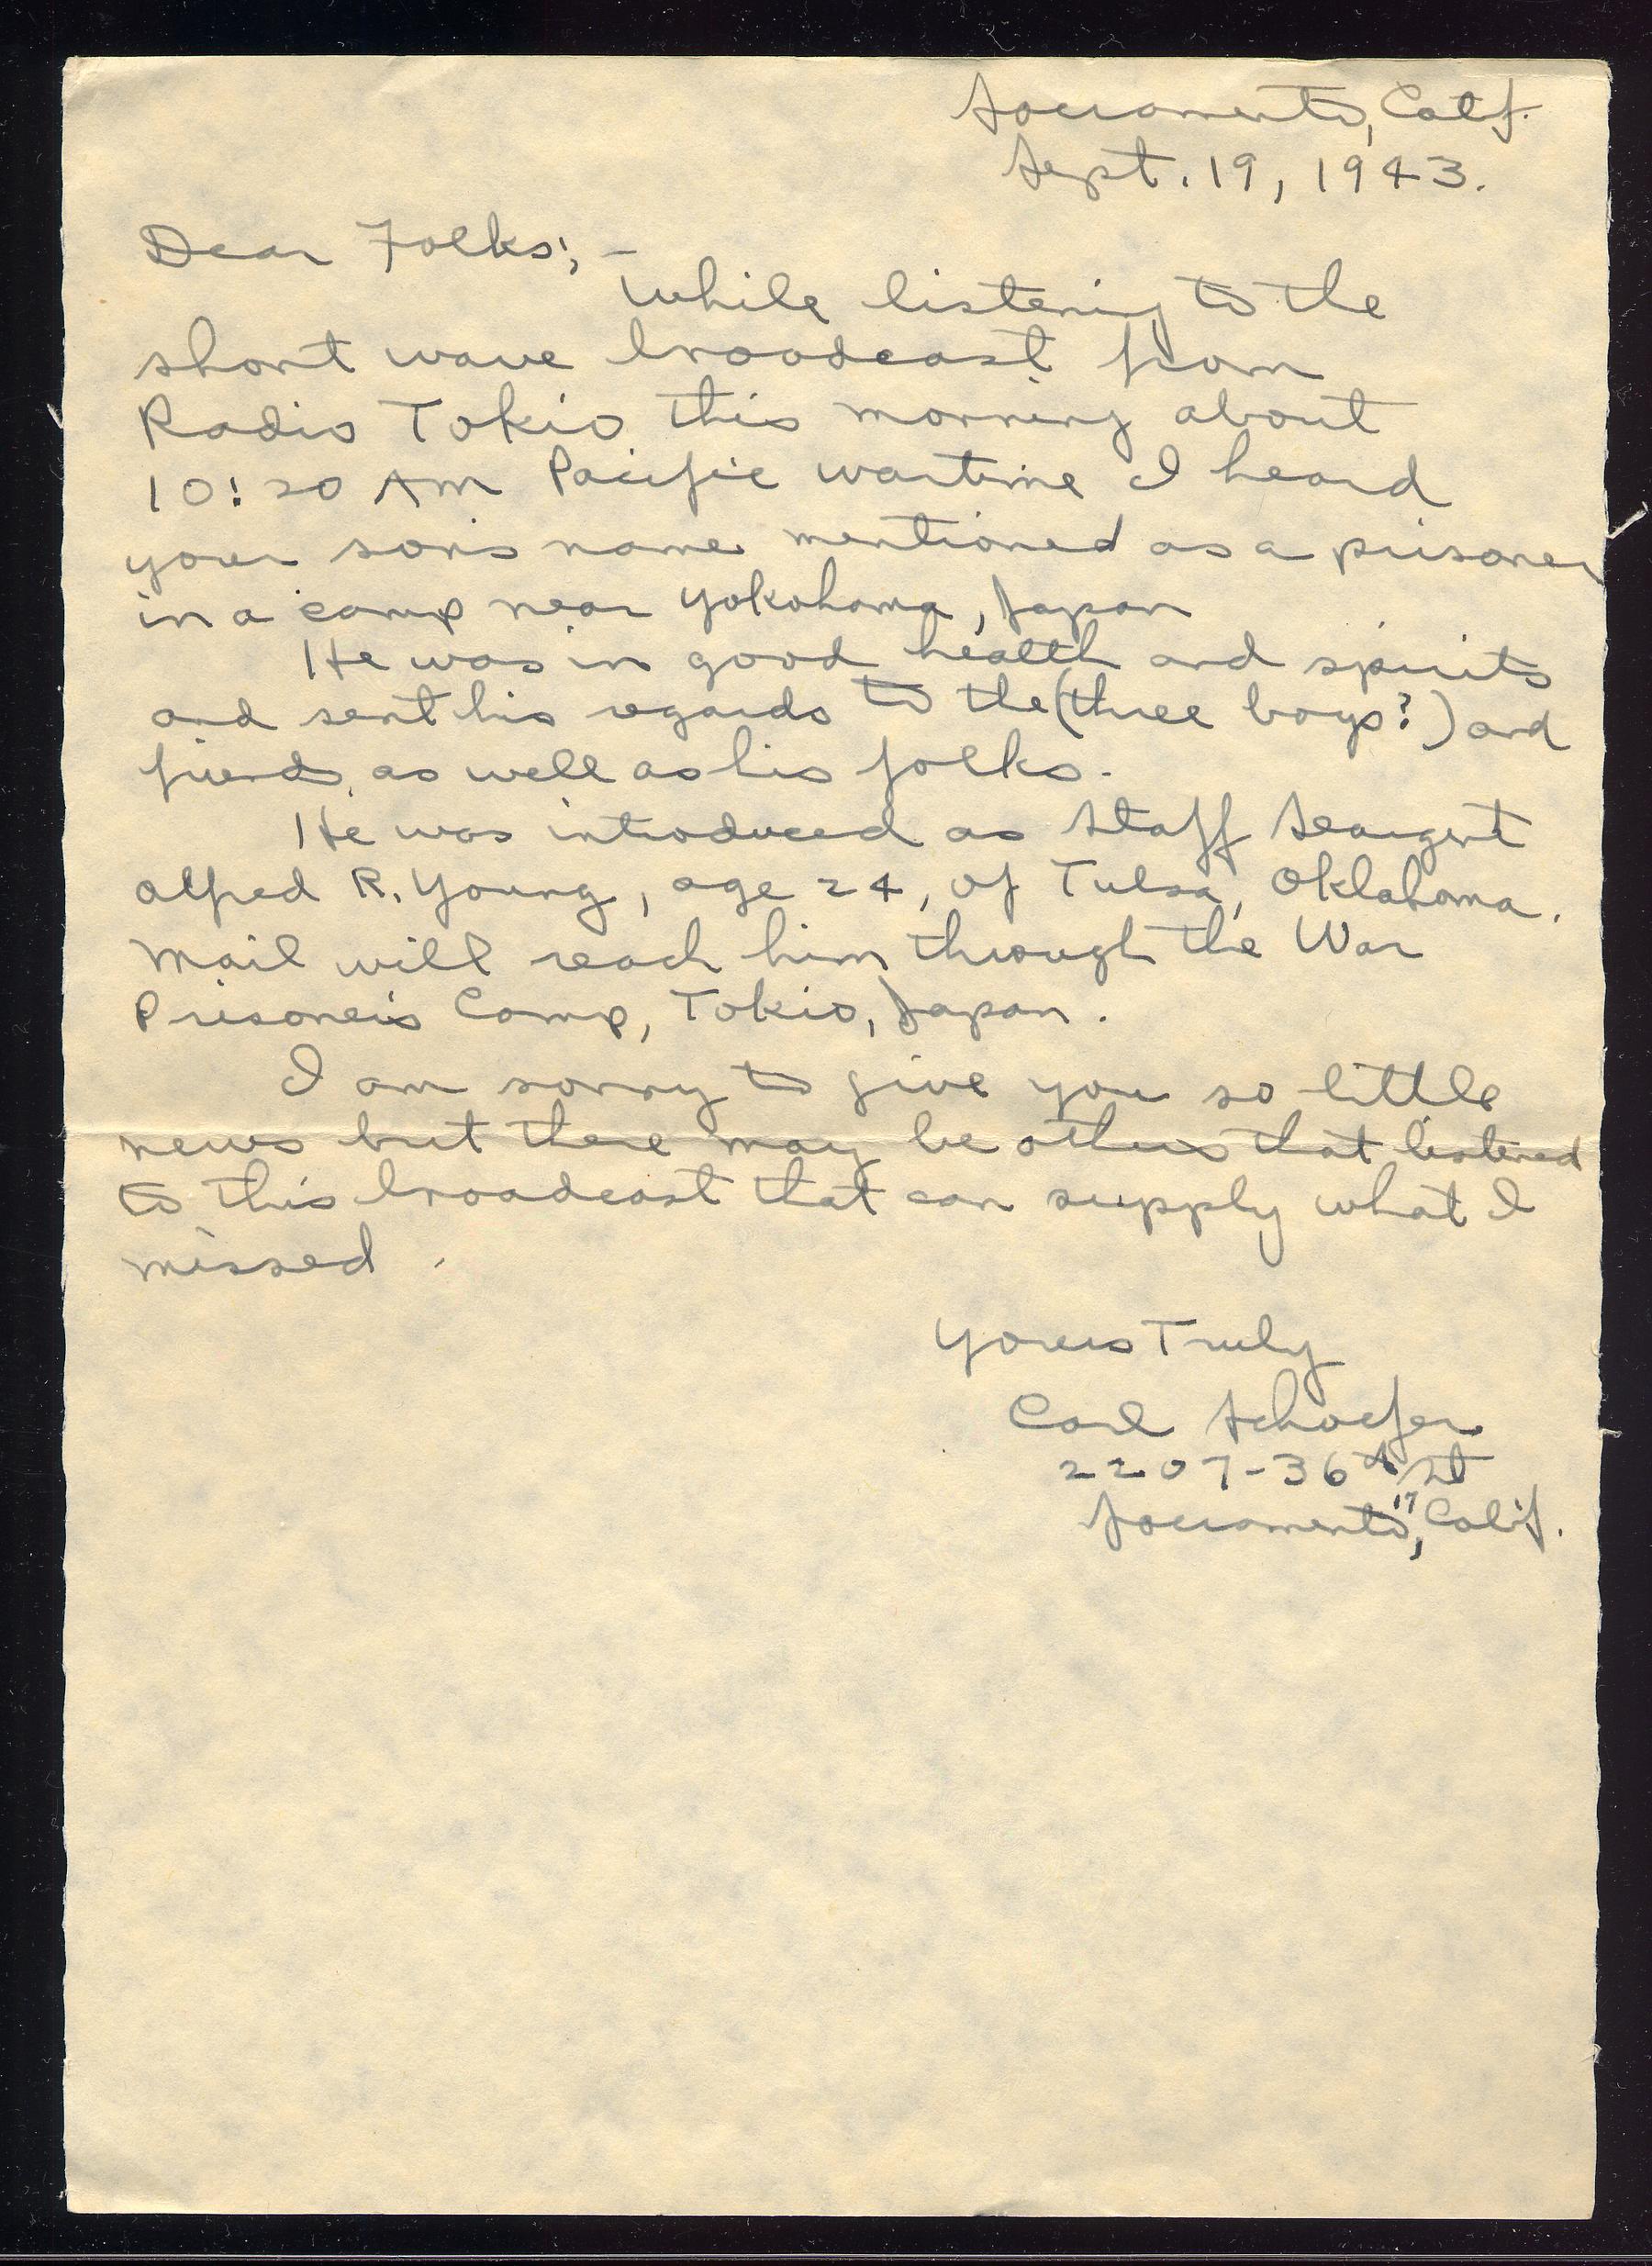 Sacramento, Calif.
Sept. 19, 1943.
Dear Folks; -
While listening to the
short wave broadcast from
Radio Tokio this morning about
10:20 AM Pacific wartime I heard
your son's name mentioned as a prisoner
in a camp near Yokohama, Japan
He was in good health and spirits
and sent his regards to the (three boys?) and
friends as well as his folks.
He was introduced as Staff Seargent
Alfred R. Young, age 24, of Tulsa, Oklahoma.
Mail will reach him through the War
Prisoner's Camp, Tokio, Japan.
I am sorry to give you so little
news but there may be others that listened
to this broadcast that can supply what I
missed.
Yours Truly
Carl Schaefer
2207-36th St
Sacramento, 17 Calif.